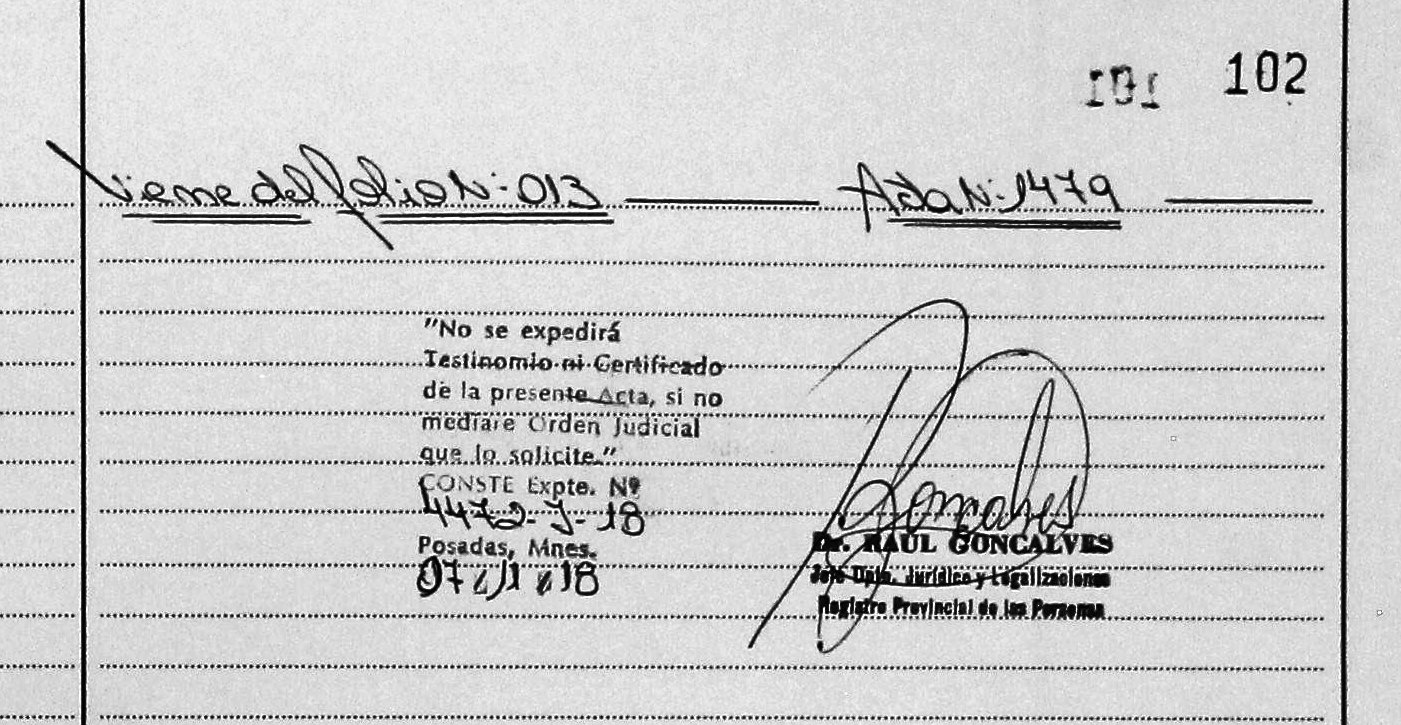 101 102
Viene del folio Nº 013 Acta Nº 1479
"No se expedirá
Testinomio ni Certificado
de la presente Acta, si no
mediare Orden Judicial
que lo solicite."
CONSTE Expte. Nº
4472-J-18
Posadas, Mnes.
07/11/18
Goncalves
Dr. RAUL GONCALVES
Jefe Dpto. Jurídico y Legalizaciones
Registro Provincial de las Personas